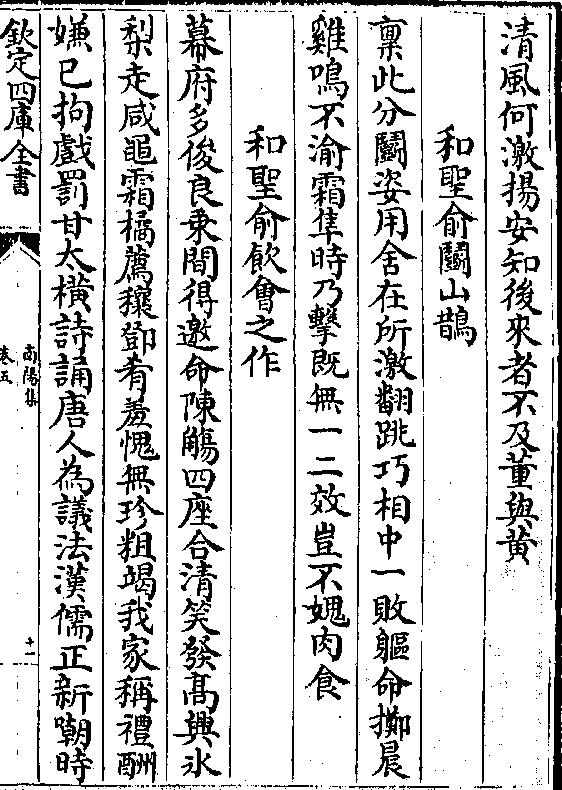 清風何激揚安知後來者不及董與黄
和聖俞鬬山鵲
禀此分鬬姿用舍在所激翻跳巧相中一敗軀命擲晨
雞鳴不渝霜隼時乃擊既無一二效豈不媿肉食
和聖俞飲會之作
幕府多俊良乘間得邀命陳觴四座合清笑發高興氷
梨走咸黽霜橘薦穰鄧肴羞愧無珍粗竭我家稱禮酬
嫌已拘戲罰甘太横詩誦唐人為議法漢儒正新嘲時
欽定四庫全書
南陽集
卷五
十一